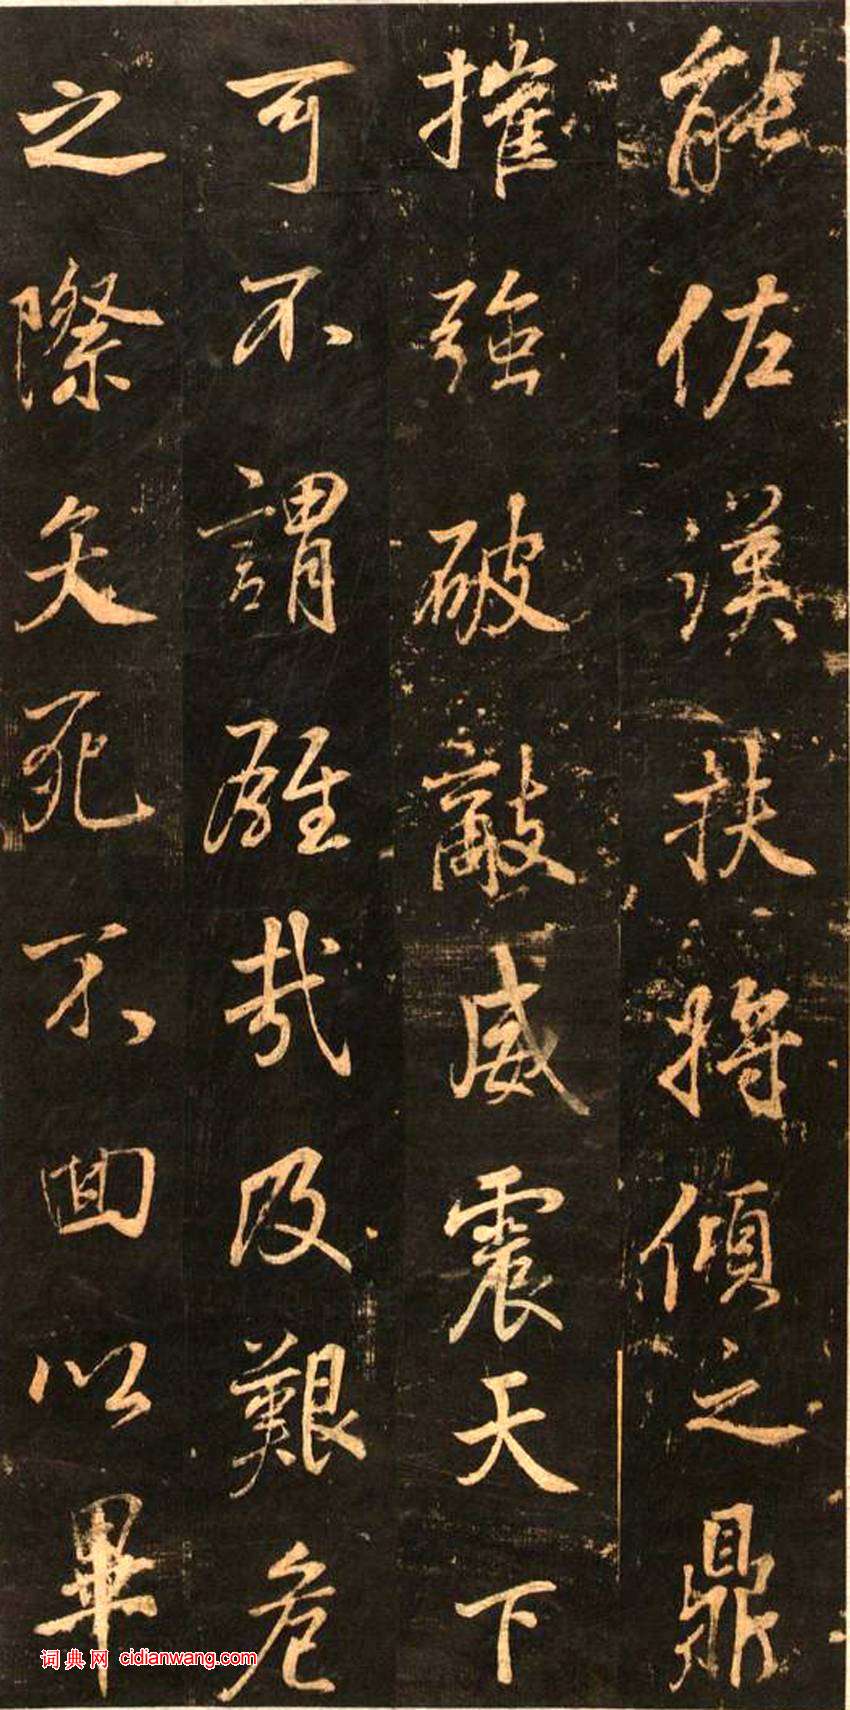 能佐漢扶將傾之鼎
摧強破敵威震天下
可不謂雄哉及艱危
之際矢死不回以畢
词典网 cidianwang.com